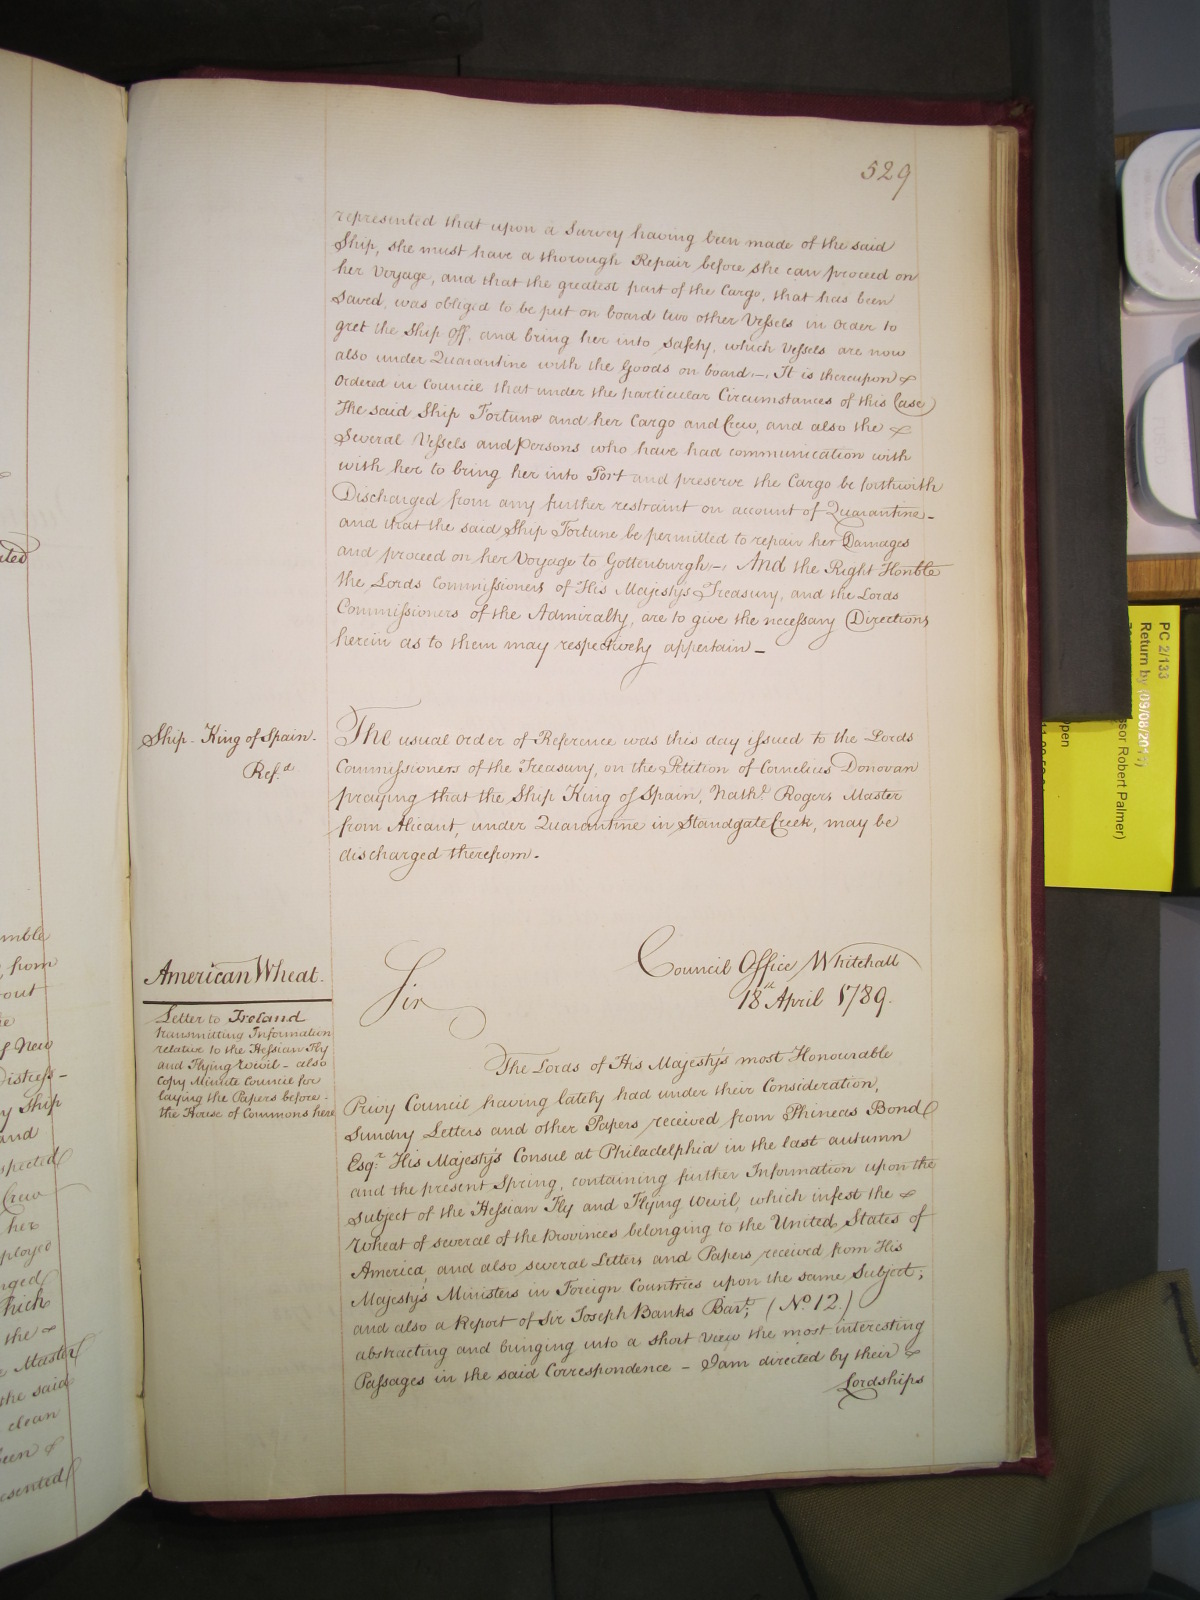 529
represented that upon a Survey having been made of the said
Ship, she must have a thorough Repair before she can proceed on
her Voyage, and that the greatest part of the Cargo, that has been
Saved, was obliged to be put on board two other Vessels in order to
get the Ship off, and bring her into Safety, which Vessels are now
also under Quarantine with the Goods on board -. It is thereupon
Ordered in Council that under the particular Circumstances of this Case
The said Ship Fortune and her Cargo and Crew, and also the
Several Vessels and Persons who have had communication with
with her to bring her into Port and preserve the Cargo be forthwith
Discharged from any further restraint on account of Quarantine -
and that the said Ship Fortune be permitted to repair her Damages
and proceed on her Voyage to Gottenburgh -. And the Right Honble
the Lords Commissioners of His Majestys Treasury, and the Lords
Commissioners of the Admiralty, are to give the necessary Directions
herein as to them may respectively appertain -
Ship - King of Spain.
Ref.d
The usual Order of Reference was this day issued to the Lords
Commissioners of the Treasury, on the Petition of Cornelius Donovan
praying that the Ship King of Spain, Nath.l Rogers Master
from Alicant, under Quarantine in Standgate Creek, may be
discharged therefrom.
American Wheat.
Letter to Ireland
transmitting Information
relative to the Hessian Fly
and Flying Wevil - also
copy Minute Council for
laying the Papers before -
the House of Commons here
Council Office Whitehall
18th April 1789.
Sir
The Lords of His Majesty's most Honourable
Privy Council having lately had under their Consideration,
Sundry Letters and other Papers received from Phineas Bond
Esq.r His Majesty's Consul at Philadelphia in the last autumn
and the present Spring, containing further Information upon the
Subject of the Hessian Fly and Flying Wevil, which infest the
Wheat of several of the Provinces belonging to the United States of
America, and also several Letters and Papers received from His
Majesty's Ministers in Foreign Countries upon the same Subject;
and also a Report of Sir Joseph Banks Bar.t; (No. 12.)
abstracting and bringing into a short View the most interesting
Passages in the said Correspondence - I am directed by their
Lordships
PC 2/133
Return by (09/08/201
ssor Robert Palmer)